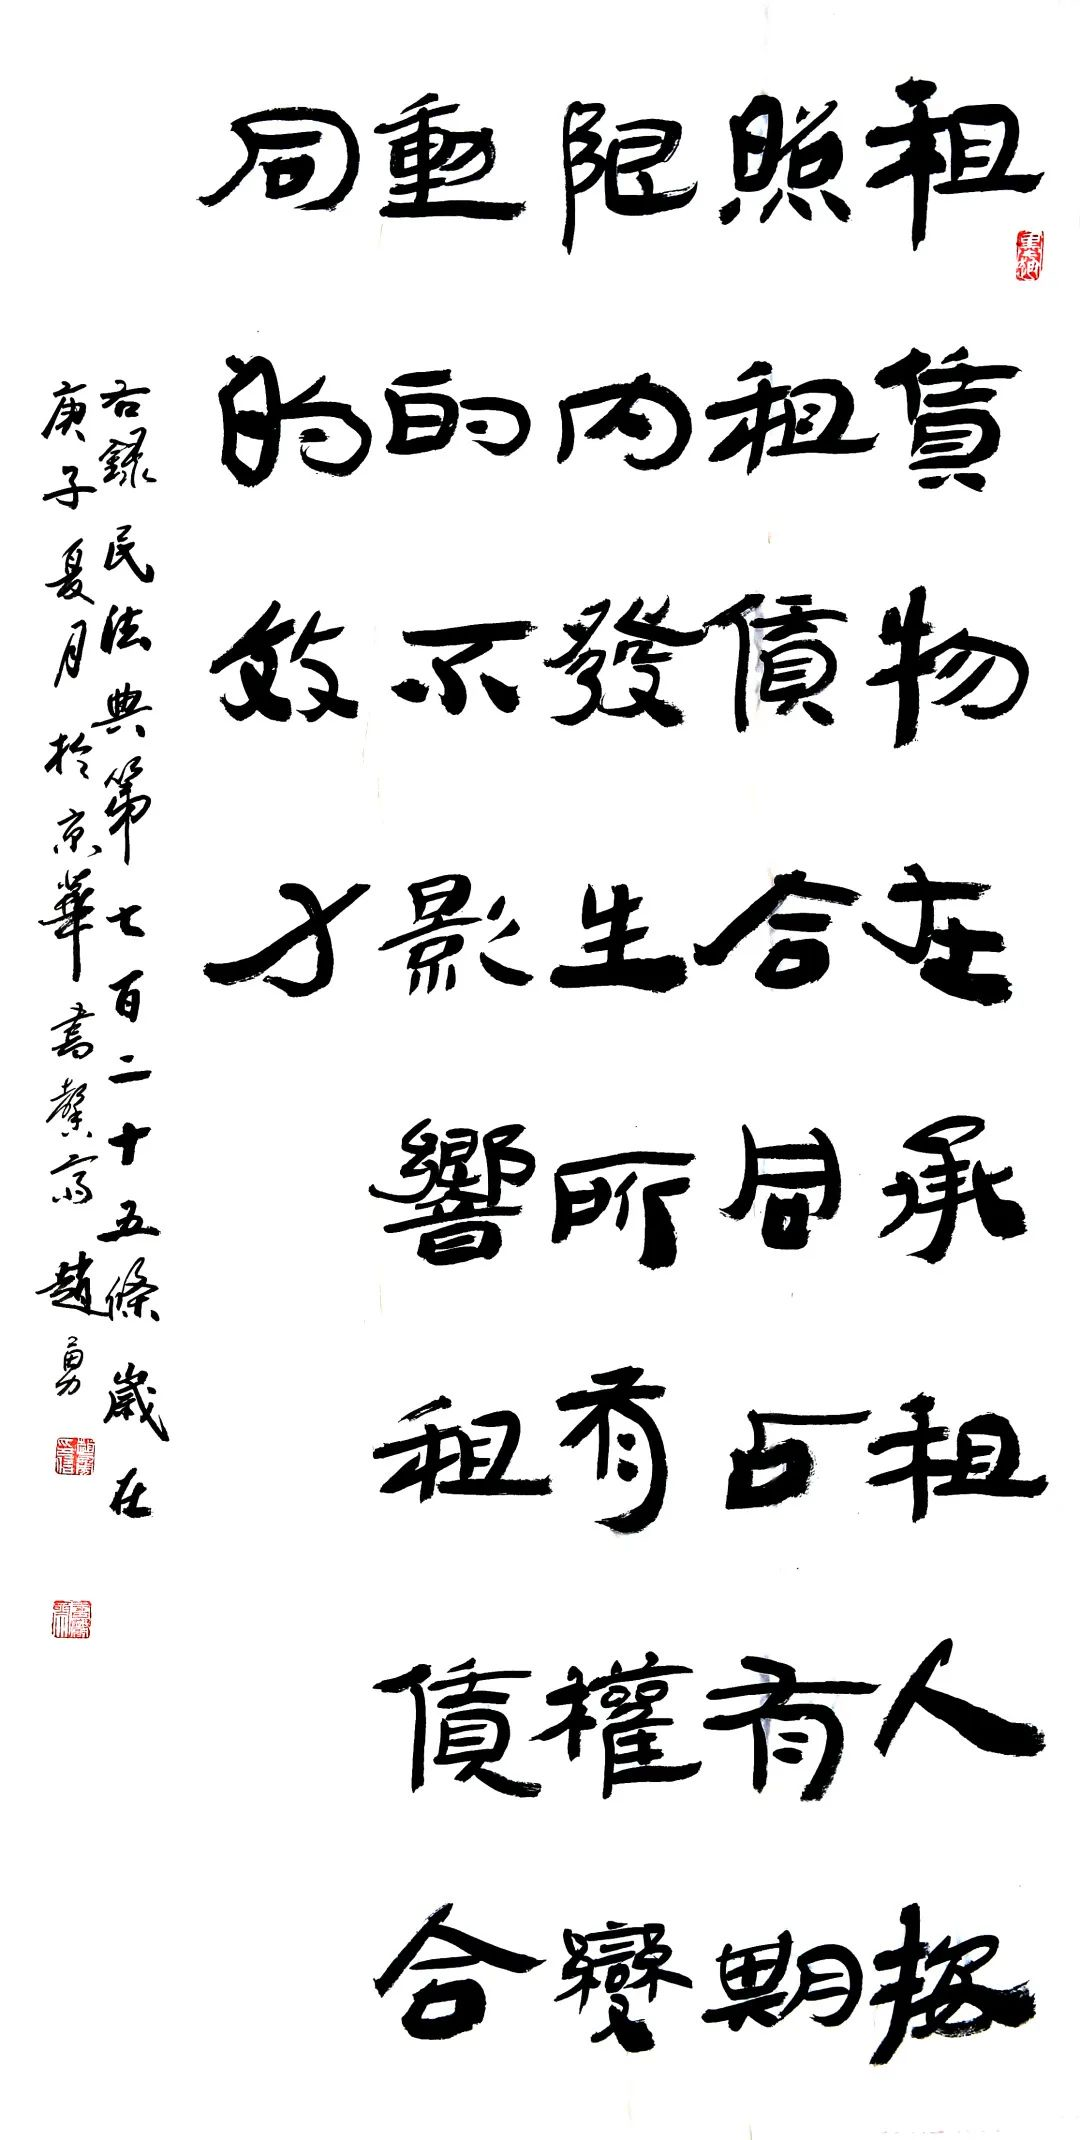 租賃物在承租人按
照租賃合同占有期
限内發生所有權變
動的不影響租賃合
同的效力
右録民法典第七百二十五條歲在
庚子夏月於京華書馨齋趙勇